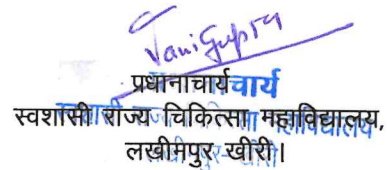 Vani Gupta
प्रधानाचार्य
स्वशासी राज्य चिकित्सा महाविद्यालय,
लखीमपुर खीरी।